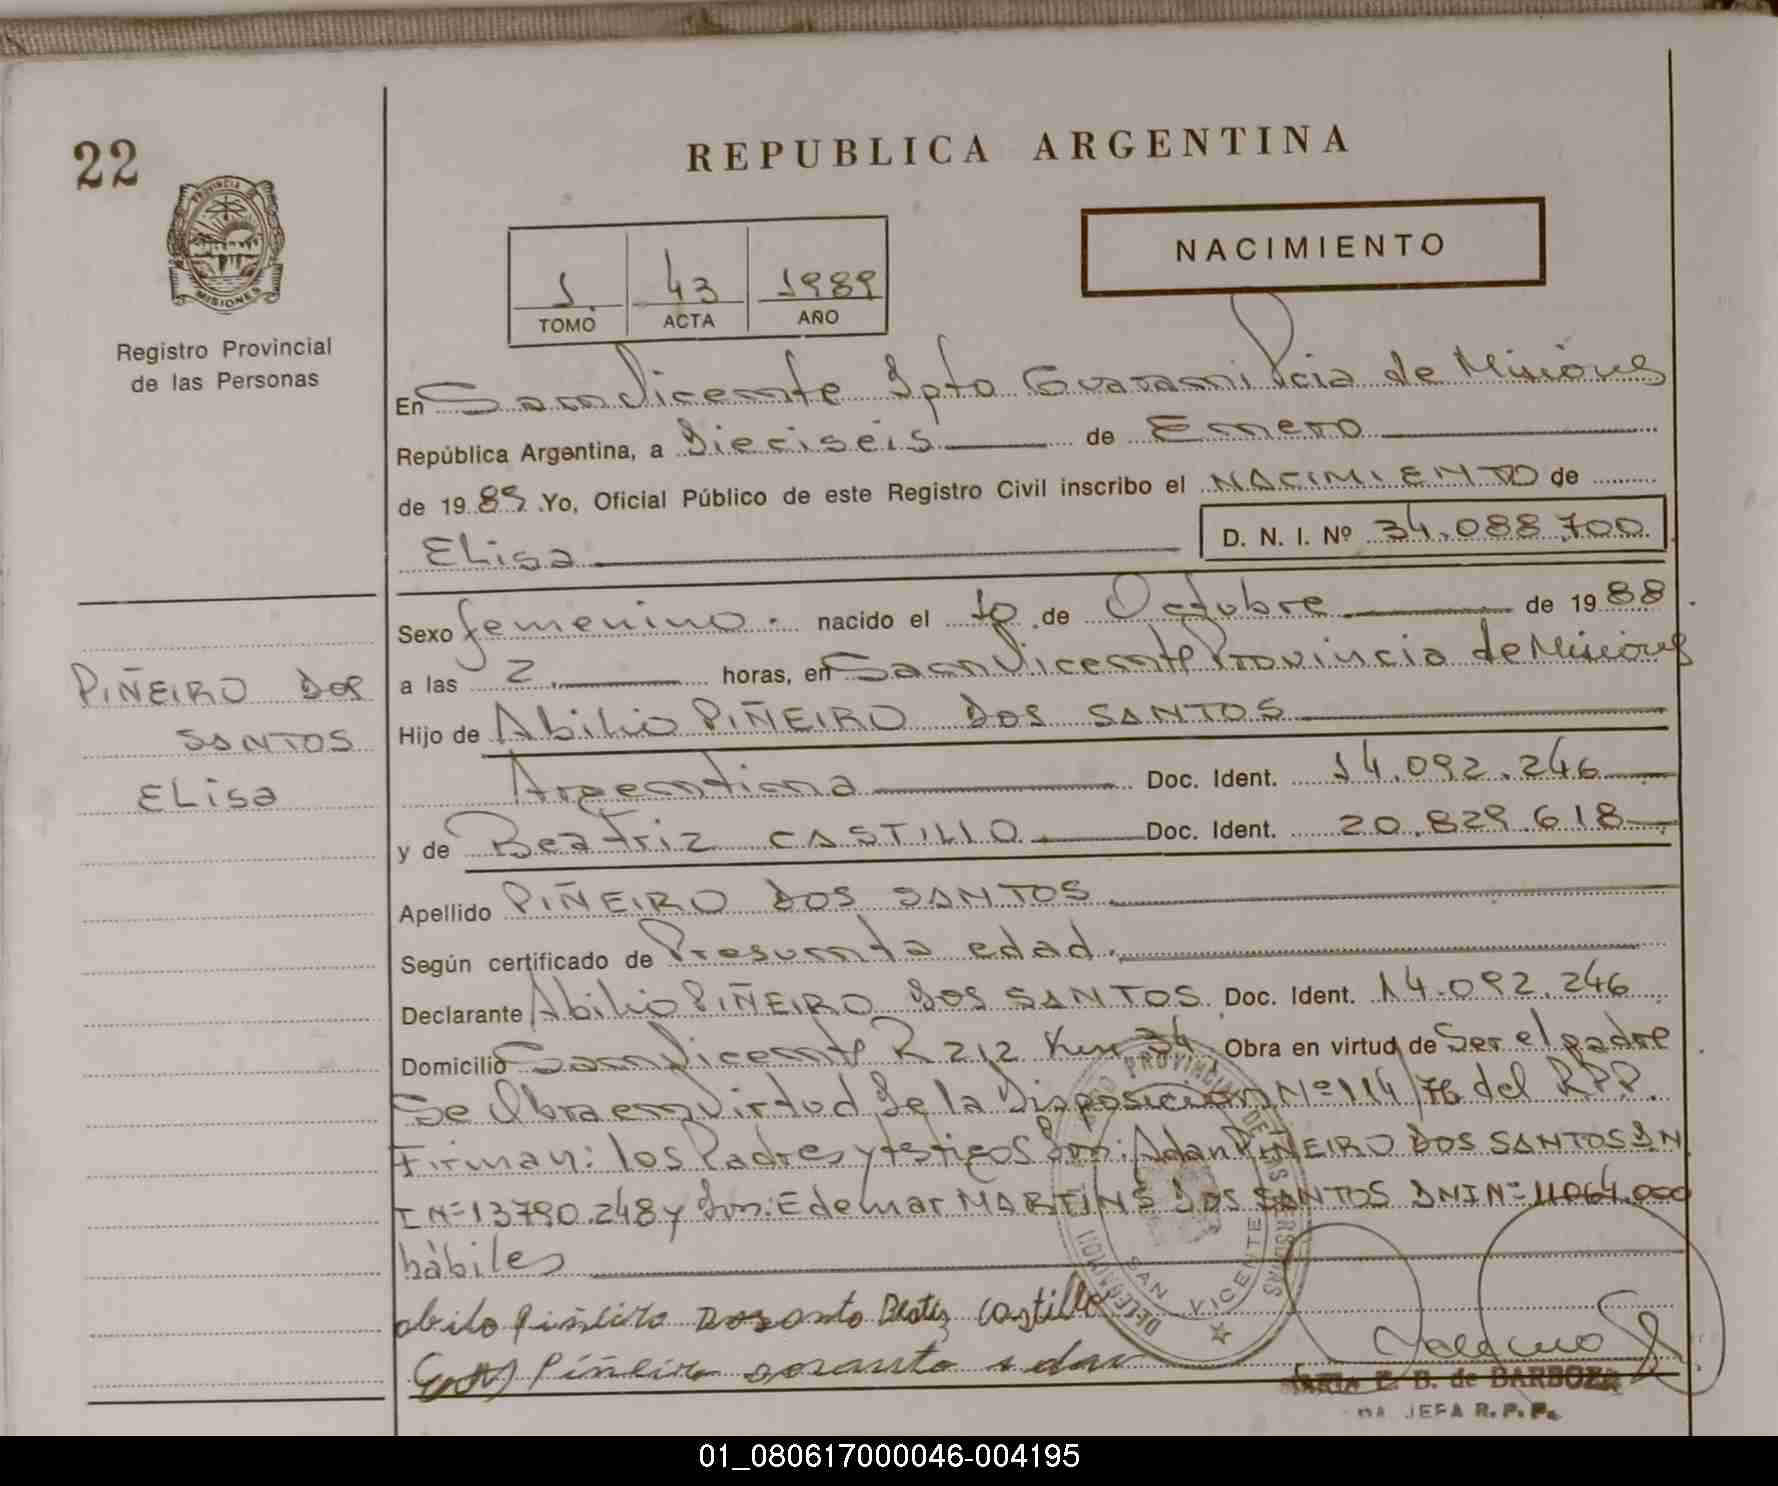 22
REPUBLICA ARGENTINA
PROVINCIA DE
MISIONES
Registro Provincial
de las Personas
1. 43 1989
TOMO ACTA AÑO
NACIMIENTO
En San Vicente Dpto Guarani Pcia de Misiones
República Argentina, a Dieciseis de Enero
de 19 89 Yo, Oficial Público de este Registro Civil inscribo el NACIMIENTO de
Elisa D. N. I. Nº 34.088.700
Sexo femenino. nacido el 10 de Octubre de 19 88
a las 2. horas, en San Vicente Provincia de Misiones
PIÑEIRO DOS
SANTOS
ELisa
Hijo de Abilio PIÑEIRO DOS SANTOS
Argentina Doc. Ident. 14.092.246
y de Beatriz CASTILLO Doc. Ident. 20.829.618
Apellido PIÑEIRO DOS SANTOS
Según certificado de Presunta edad.
Declarante Abilio PIÑEIRO DOS SANTOS Doc. Ident. 14.092.246
Domicilio San Vicente R 212 Km 34 Obra en virtud de Ser el padre
Se Obra en Virtud De la Disposición Nº 114/76 del R.P.P.
Firman: los Padres y testigos Don: Adan PIÑEIRO DOS SANTOS DN
I Nº 13790.248 y Don: Edemar MARTINS DOS SANTOS DNI Nº 11064.000
hábiles
abilo Piñeiro Dosanto Beatriz Castillo
Piñeiro dosanto adan
SAN VICENTE
E. B. de BARBOZA
DA JEFA R.P.P.
01_080617000046-004195